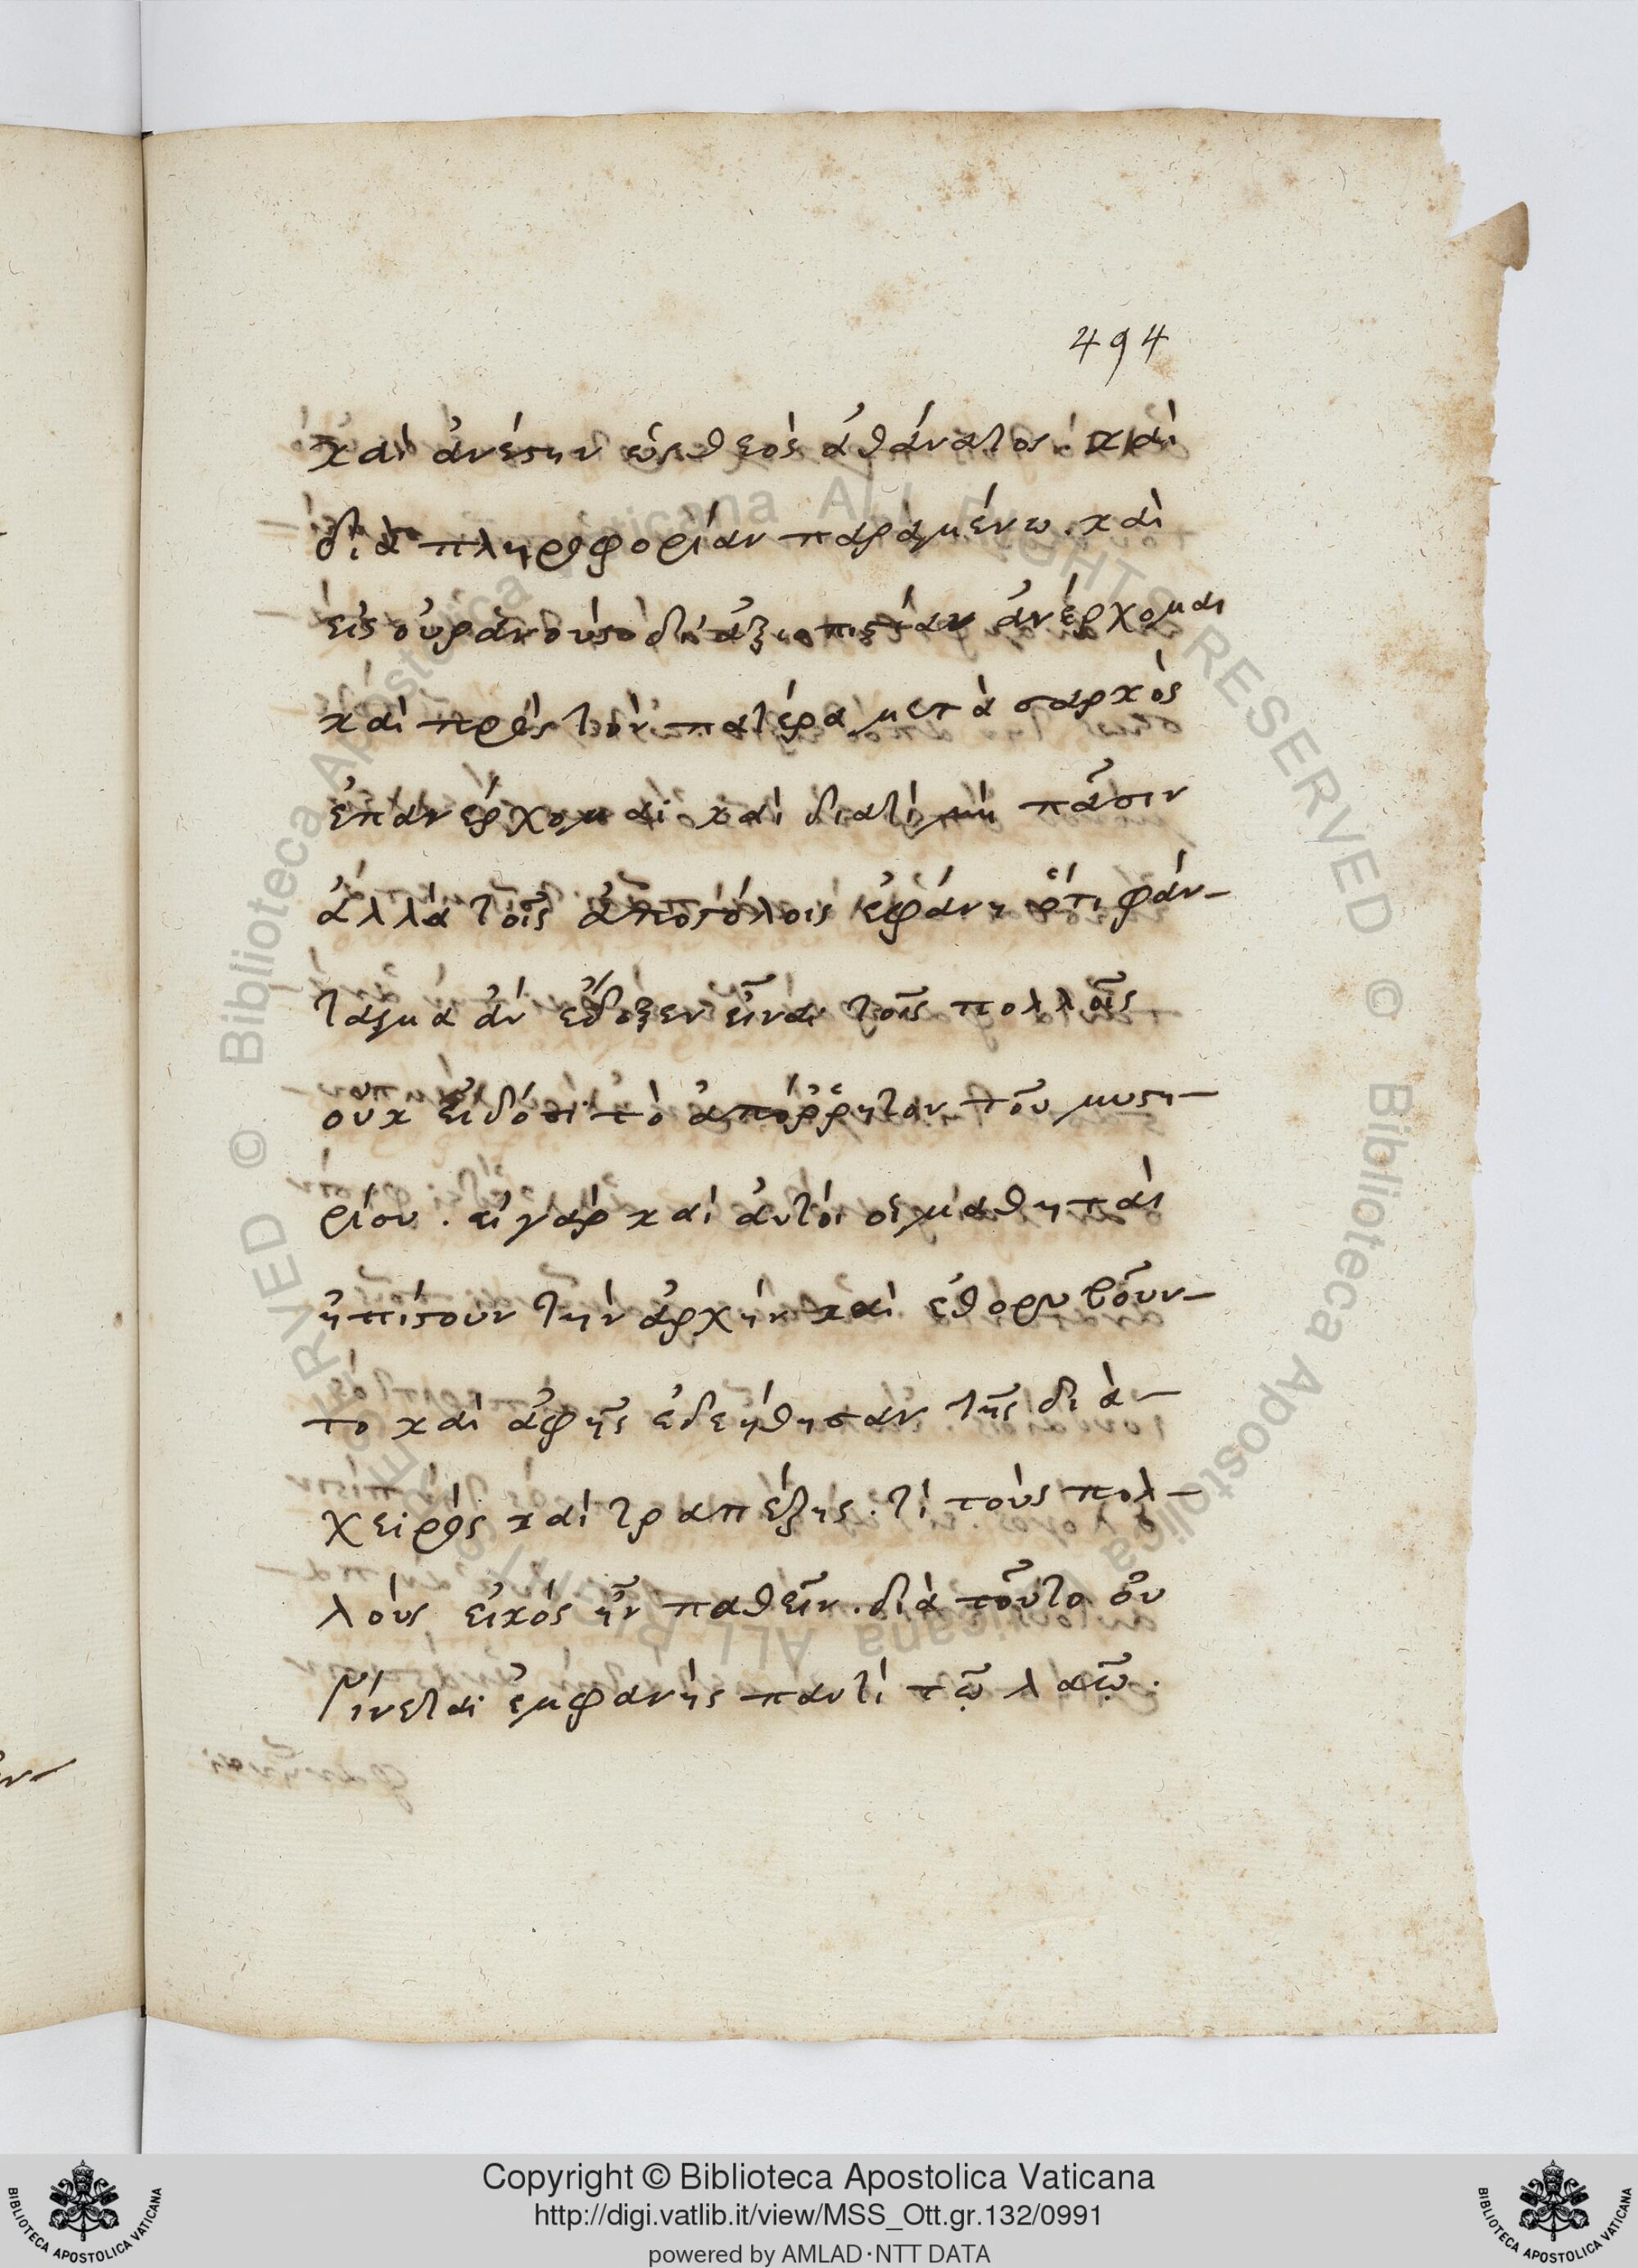 494
καὶ ἀνέστην ὡς θεὸς ἀθάνατος· καὶ
διὰ πληροφορίαν παραμένω. καὶ
εἰς οὐρανοὺς δι' ἀξιοπιστίαν ἀνέρχομαι
καὶ πρὸς τὸν πατέρα μετὰ σαρκὸς
ἐπανέρχομαι· καὶ διατί μὴ πᾶσιν
ἀλλὰ τοῖς ἀποστόλοις ἐφάνη ὅτι φάν-
τασμα ἀν ἔδοξεν εἶναι τοῖς πολλοῖς
οὐκ εἰδόσι τὸ ἀπόῤῥητον τοῦ μυστη-
ρίου. εἰ γὰρ καὶ αὐτοὶ οἱ μαθηταὶ
ἠπίστουν τὴν ἀρχὴν καὶ ἐθορυβοῦν-
το καὶ ἀφῆς ἐδεήθησαν τῆς διὰ-
χειρὸς καὶ τραπέζης. τί τοὺς πολ-
λοὺς εἰκός ἦν παθεῖν. διὰ τοῦτο οὐ
γίνεται ἐμφανὴς παντὶ τῷ λαῷ.
© Biblioteca Apostolica Vaticana ALL RIGHTS RESERVED © Biblioteca Apostolica Vaticana ALL RIGHTS RESERVED
Copyright © Biblioteca Apostolica Vaticana
http://digi.vatlib.it/view/MSS_Ott.gr.132/0991
powered by AMLAD·NTT DATA
BIBLIOTECA APOSTOLICA VATICANA
BIBLIOTECA APOSTOLICA VATICANA